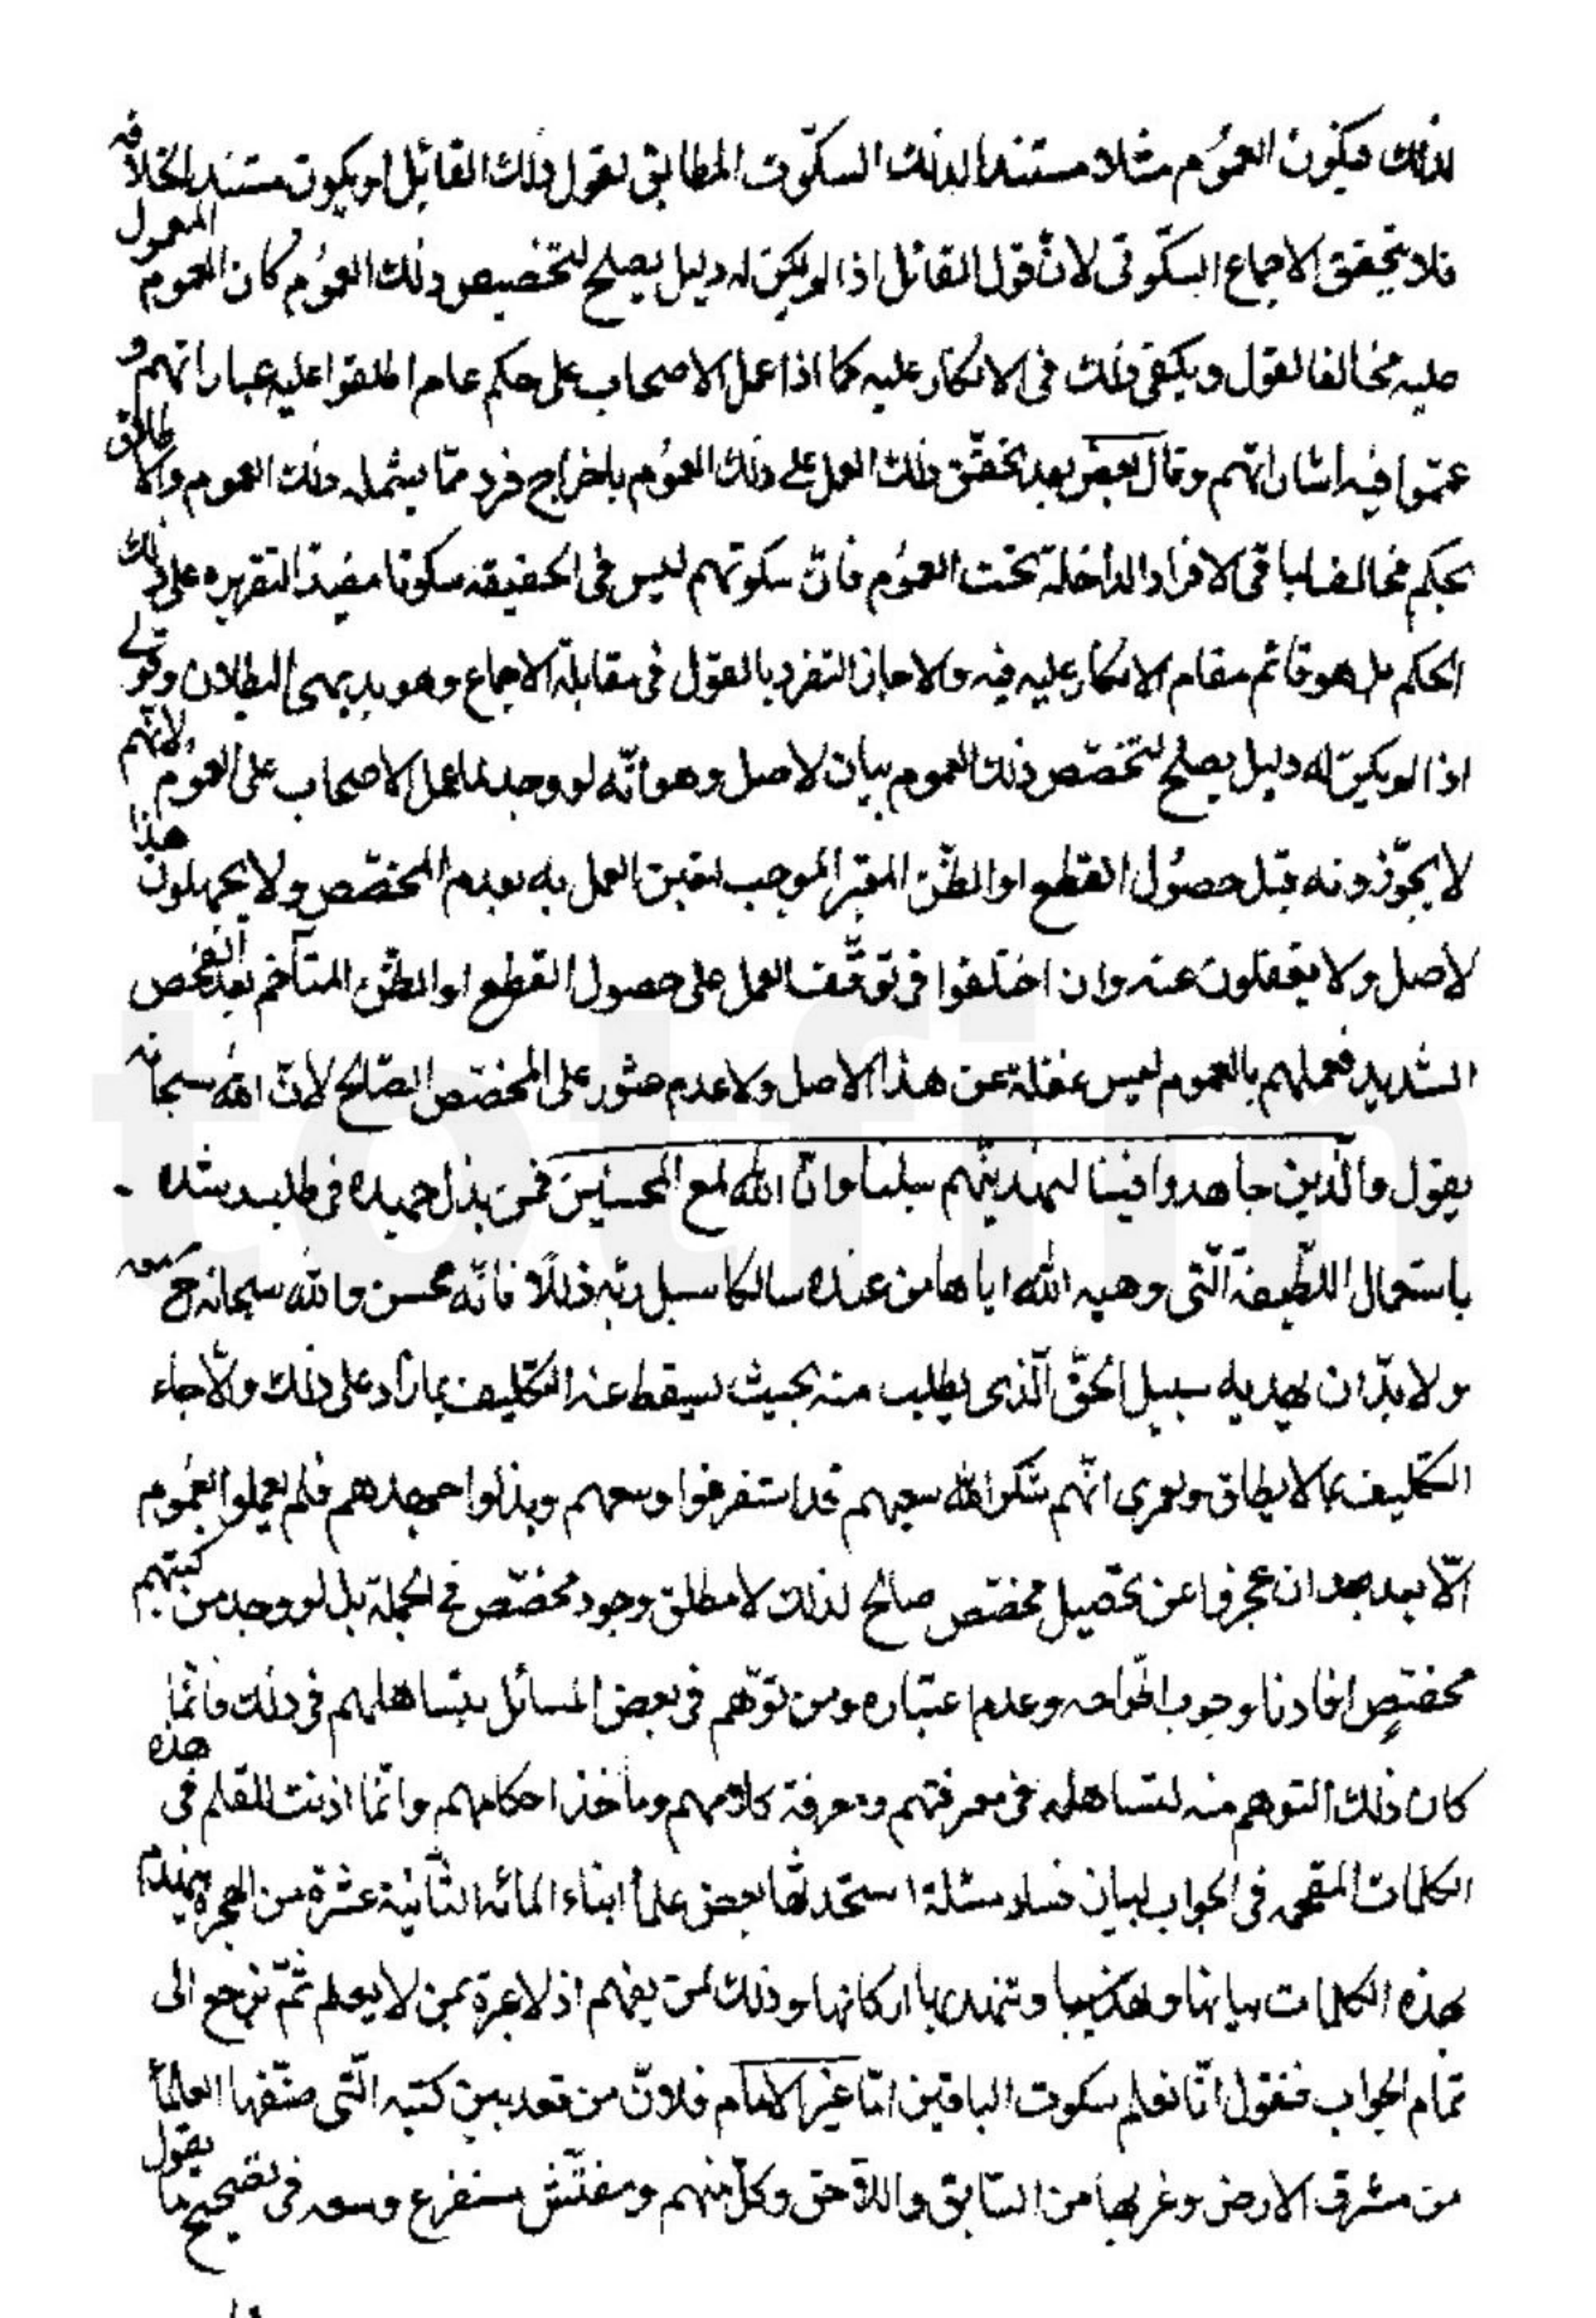 لذلك فيكون العموم مثلا مستندا لذلك السكوت المطابق لقول ذلك القائل او يكون مستند الخلافه
فلا يتحقق الاجماع السكوتى لانّ قول القائل اذا لم يكن له دليل يصلح لتخصيص ذلك العموم كان العموم المعمول
عليه مخالفا لقول ويكفى ذلك فى الانكار عليه كما اذا عمل الاصحاب على حكم عام اطلقوا عليه عباراتهم و
عمّموا فيه اشاراتهم وقال بعض بعد تحقّق ذلك العمل على ذلك العموم باخراج فرد ممّا يشمله ذلك العموم والاطلاق
بحكم مخالف لباقى الافراد الداخلة تحت العموم فانّ سكوتهم ليس فى الحقيقه سكوتا مفيدا لتقريره على ذلك
الحكم بل هو قائم مقام الانكار عليه فيه والا جاز التفرد بالقول فى مقابلة الاجماع وهو بديهى البطلان وقولى
اذا لم يكن له دليل يصلح لتخصّص ذلك العموم بيان لاصل وهو انّه لو وجد لما عمل الاصحاب على العموم لانهم
لا يجوّزونه قبل حصول القطع او الظنّ المعتبر الموجب لتعين العمل به بعدم المخصّص ولا يجهلون هذا
لاصل ولا يغفلون عنه وان اختلفوا فى توقّف العمل على حصول القطع او الظنّ المتآخم بعد الفحص
الشديد فعملهم بالعموم ليس غفلة عن هذا الاصل ولا عدم عثور على المخصّص الصّالح لانّ الله سبحانه
يقول والّذين جاهدوا فينا لنهدينّهم سبلنا وانّ الله لمع المحسنين فمن بذل جهده فى طلب رشده
باستعمال اللّطيفة الّتى وهبه الله اياها من عنده سالكا سبل ربّه ذللًا فانّه محسن والله سبحانه ح معه
ولا بدّ ان يهديه سبيل الحقّ الّذى يطلب منه بحيث يسقط عنه التكليف بما زاد على ذلك والّا جاء
التكليف بما لا يطاق ولعمرى انّهم شكر الله سعيهم قد استفرغوا وسعهم وبذلوا جهدهم فلم يعملوا بالعموم
الّا بعد ان عجزوا عن تحصيل مخصّص صالح لذلك لا مطلق وجود مخصّص فى الجملة بل لو وجد من كتبهم
مخصّصٍ افادنا وجوب اطّراحه وعدم اعتباره ومن توّهم فى بعض المسائل بتساهلهم فى ذلك فانّما
كان ذلك التوهم منه لتساهله فى معرفتهم ومعرفة كلامهم ومأخذ احكامهم وانّما اذنت للقلم فى هذه
الكلمات المقحمه فى الجواب لبيان فساد مسئلة استحدثها بعض علماء ابناء المائه الثّانية عشرة من الهجرة
بهذه الكلمات بيانها وذلك لمن يفهم اذ لا عبرة بمن لا يعلم ثمّ نرجع الى
تمام الجواب فنقول انّا نعلم سكوت الباقين امّا غير الامام فلانّ من كتبه الّتى صنّفها العلماء
من مشرق الارض وغربها من السّابق واللّاحق وكلّ منهم ومفتّش مستفرغ وسعه فى تصحيح ما يقول